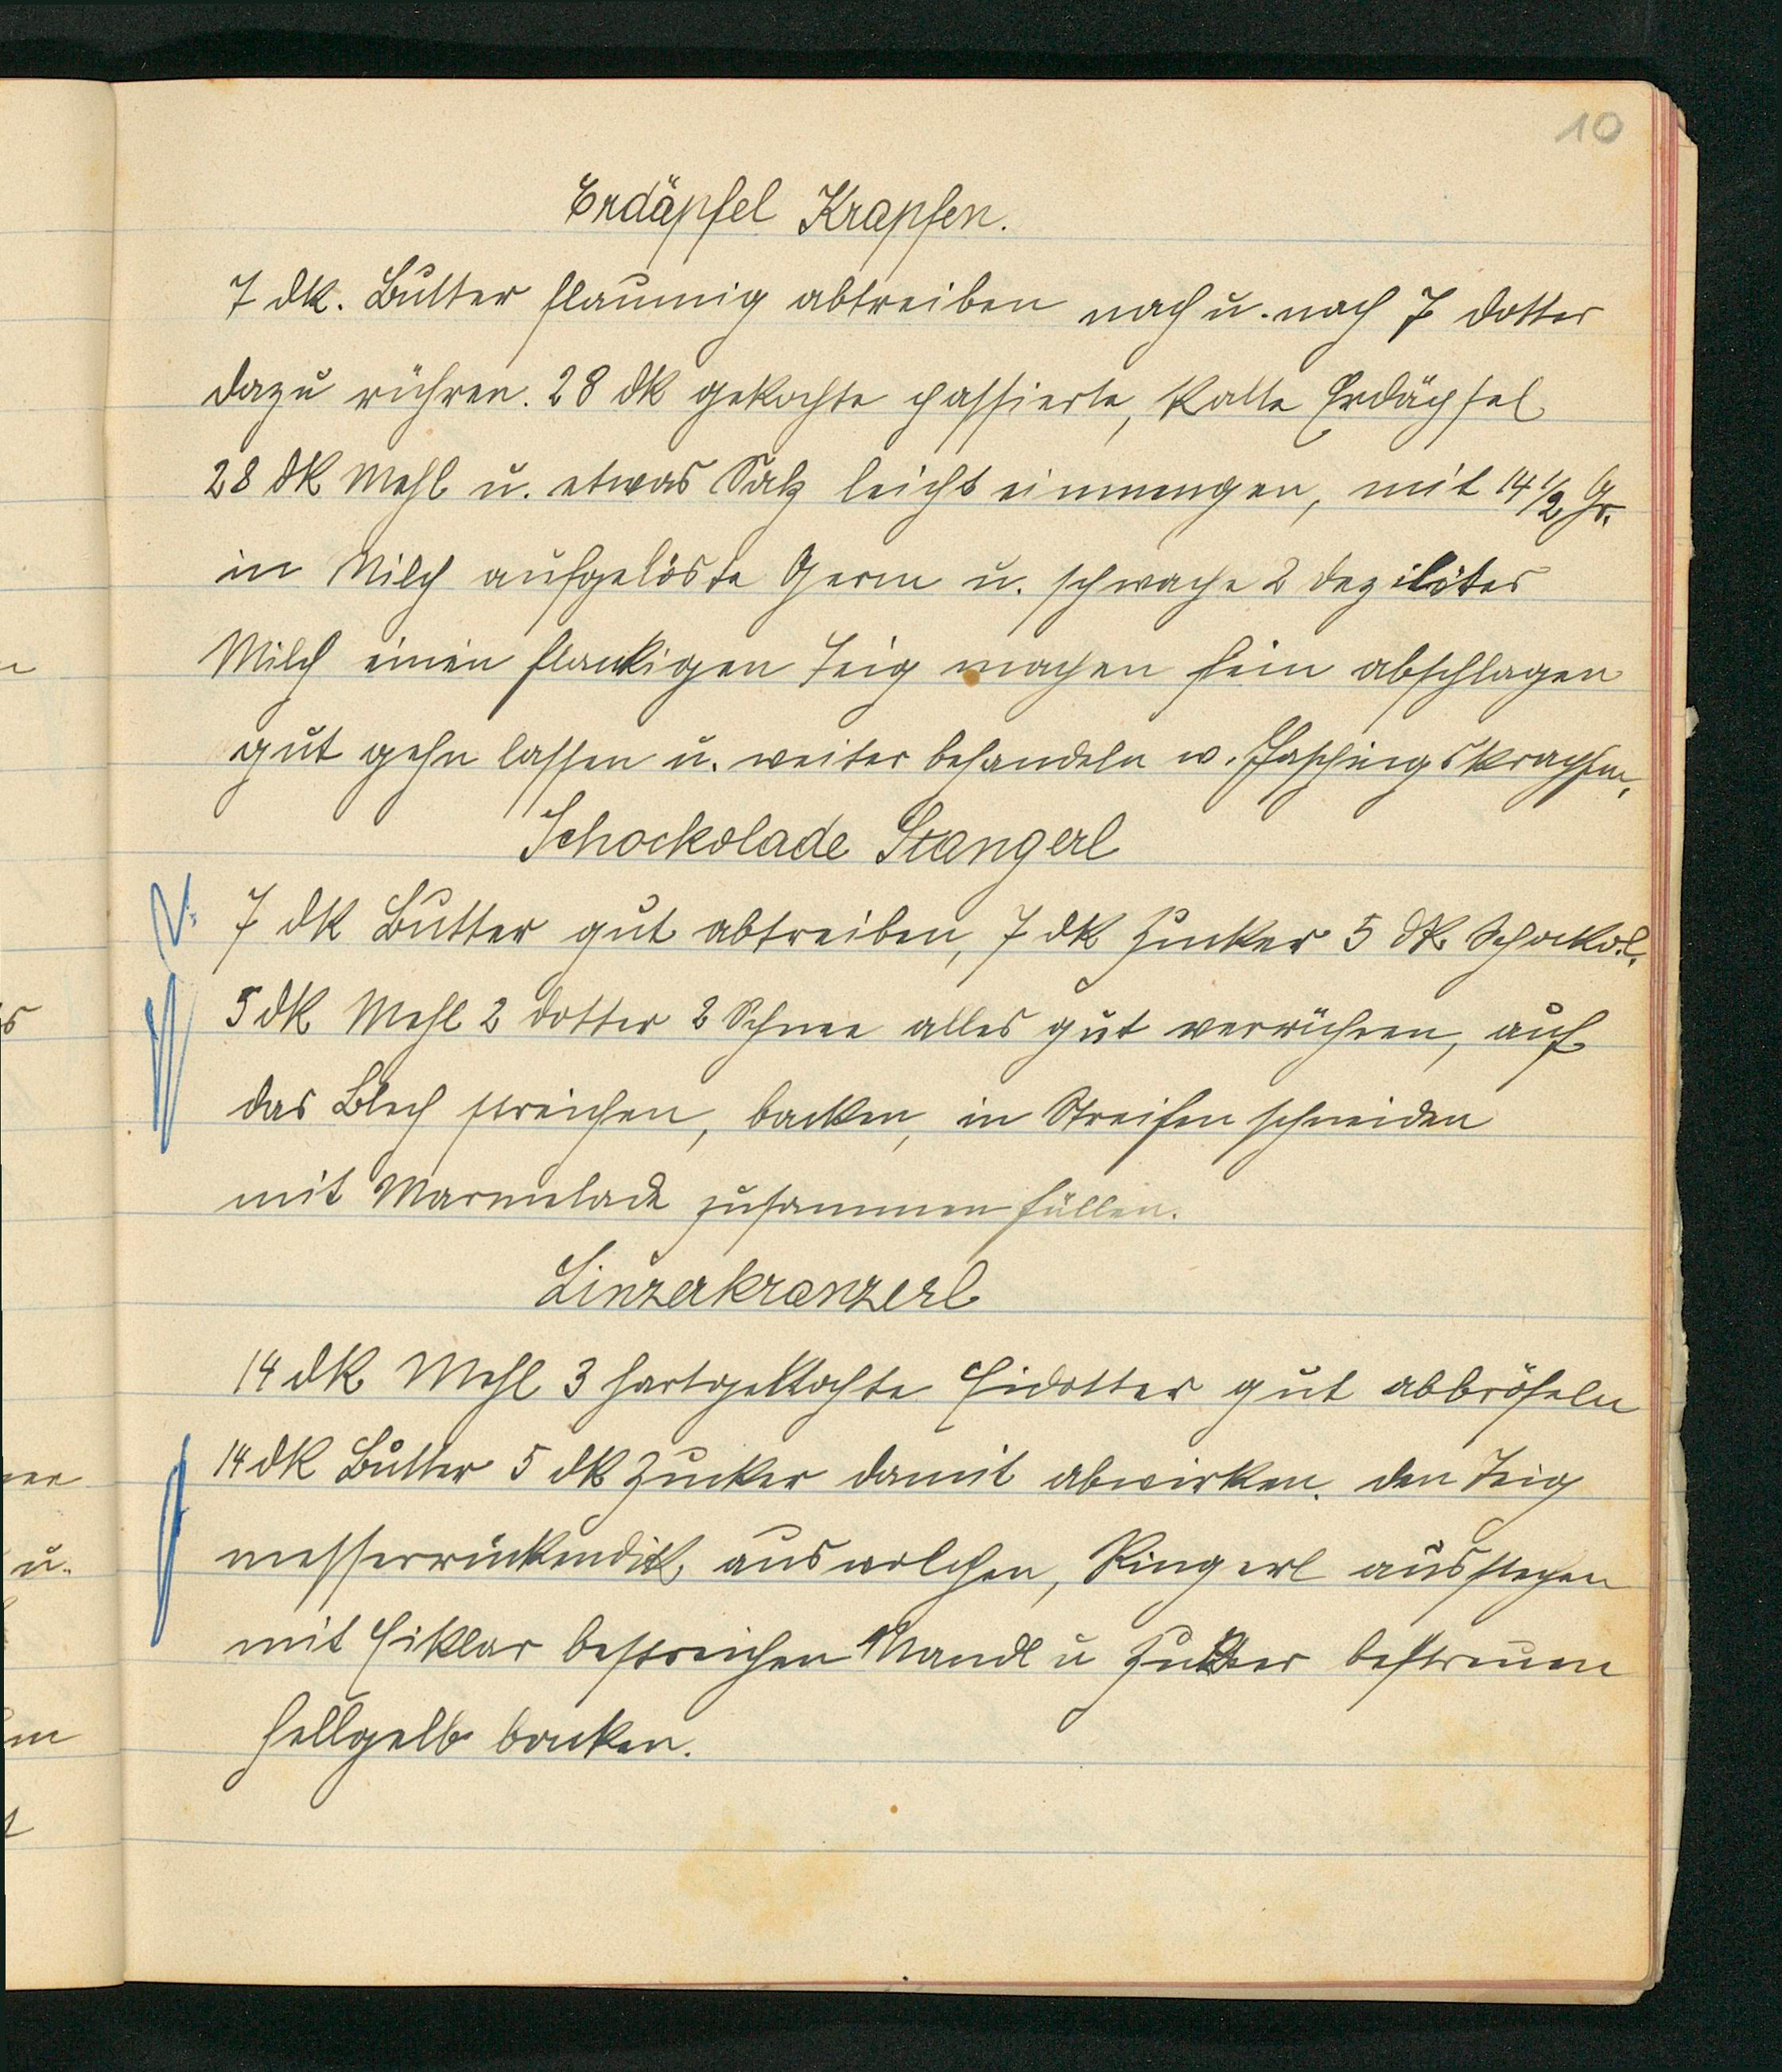 10
Erdäpfel Krapfen.
7 dk. Butter flaumig abtreiben nach u. nach 7 Dotter
dazu rühren. 28 dk gekochte passierte, kalte Erdäpfel
28 dk Mehl u. etwas Salz leicht einmengen, mit 14 1/2 Gr.
in Milch aufgelöste Germ u. schwache 2 Deziliter
Milch einen flaumigen Teig machen fein abschlagen
gut gehn lassen u. weiter behandeln w. Faschingskrapfen.
Schockolade Stangerl
7 dk Butter gut abtreiben, 7 dk Zucker 5 dk Schokol.
5 dk Mehl 2 Dotter 2 Schnee alles gut verrühren, auf
das Blech streichen, backen, in Streifen schneiden
mit Marmelade zusammen füllen.
Linzerkranzerl
14 dk Mehl 3 hartgekochte Eidotter gut abbröseln
14 dk Butter 5 dk Zucker damit abwirken. den Teig
messerrückendick auswolchen, Ringerl ausstechen
mit Eiklar bestreichen Mandl u Zucker bestreuen
hellgelb backen.